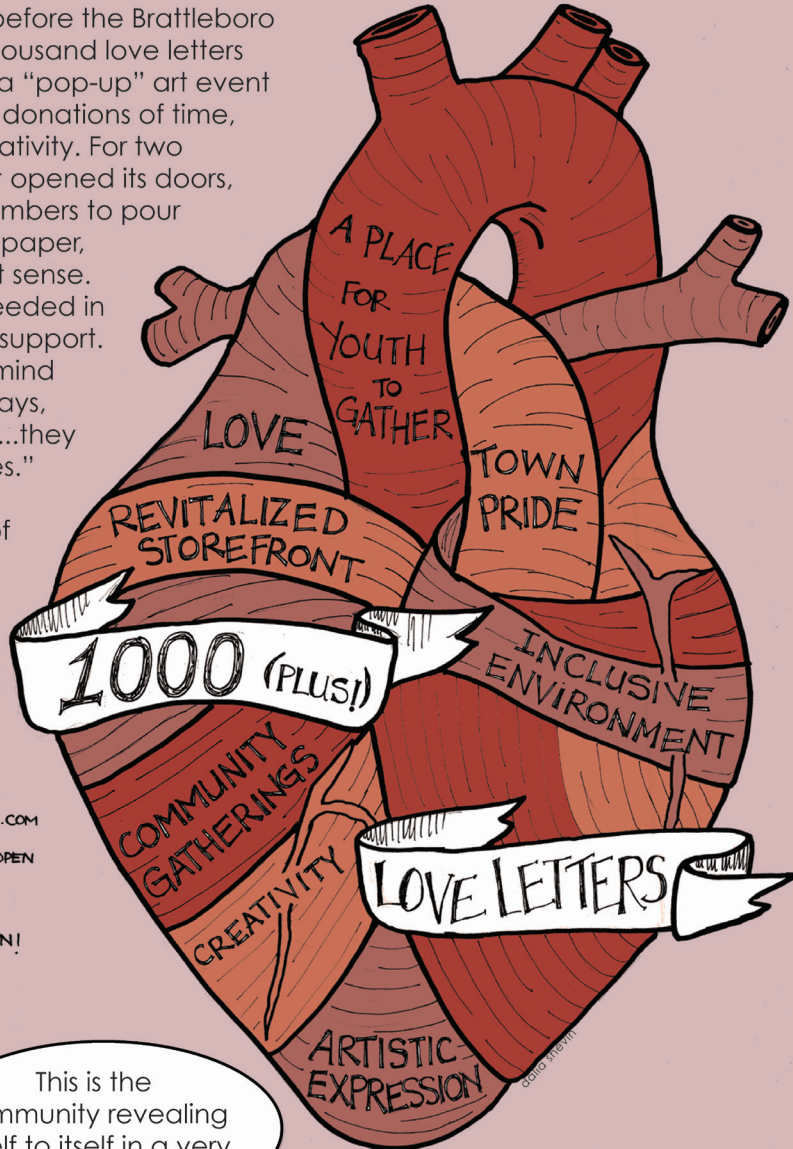 before the Brattleboro
ousand love letters
a “pop-up” art event
donations of time,
ativity. For two
opened its doors,
mbers to pour
paper,
t sense.
eeded in
support.
mind
ays,
...they
es.”
of
A PLACE
FOR
YOUTH
TO
GATHER
LOVE
TOWN
PRIDE
REVITALIZED
STOREFRONT
1000 (PLUS!)
INCLUSIVE
ENVIRONMENT
COMMUNITY
GATHERINGS
.COM
OPEN
N!
LOVE LETTERS
CREATIVITY
ARTISTIC
EXPRESSION
dalia shevin
This is the
mmunity revealing
elf to itself in a very